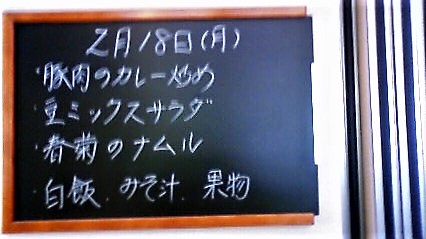 2月18日(月)
・豚肉のカレー炒め
・豆ミックスサラダ
・春菊のナムル
・白飯 みそ汁 果物